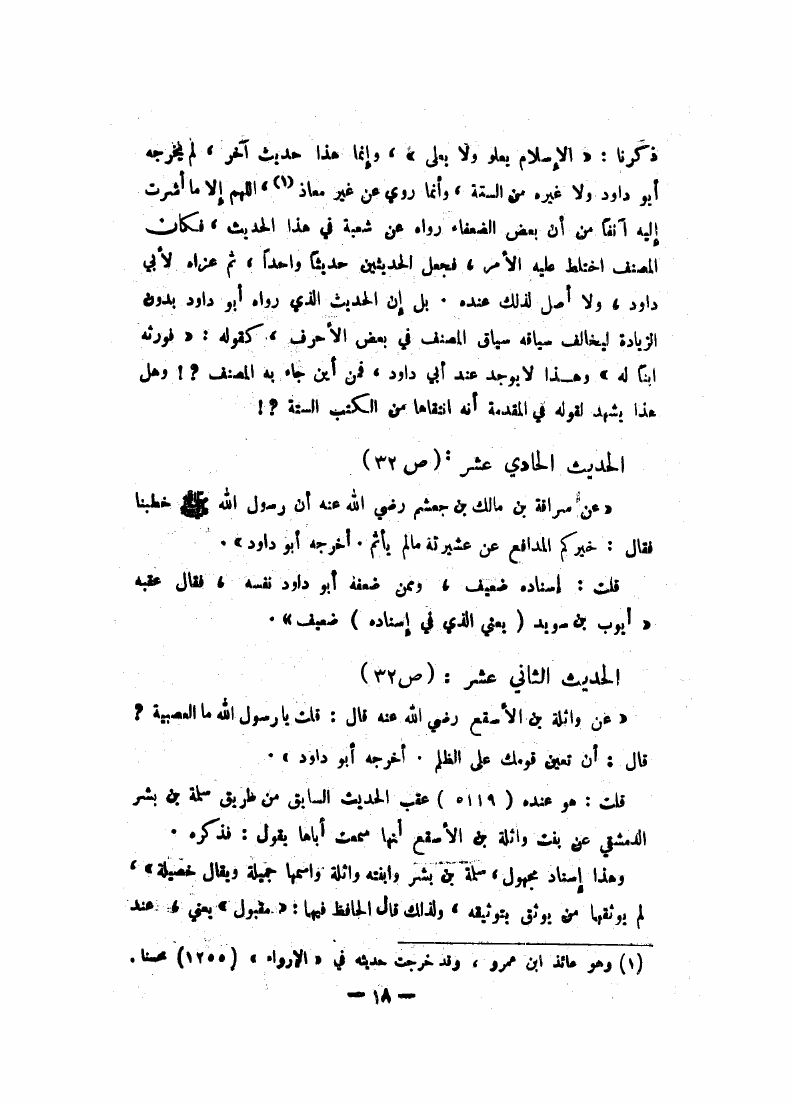 ذكرنا : « الإسلام يعلو ولا يعلى » ، وإنما هذا حديث آخر ، لم يخرجه
أبو داود ولا غيره من الستة ، وأنما روي عن غير معاذ (١) ، اللهم إلا ما أشرت
إليه آنفاً من أن بعض الضعفاء رواه عن شعبة في هذا الحديث ، فكان
المصنف اختلط عليه الأمر ، فجعل الحديثين حديثاً واحداً ، ثم عزاه لأبي
داود ، ولا أصل لذلك عنده . بل إن الحديث الذي رواه أبو داود بدون
الزيادة ليخالف سياقه سياق المصنف في بعض الأحرف ، كقوله : « فورثه
ابناً له » وهذا لا يوجد عند أبي داود ، فمن أين جاء به المصنف ؟! وهل
هذا يشهد لقوله في المقدمة أنه انتقاها من الكتب الستة ؟!
الحديث الحادي عشر : ( ص ٣٢ )
« عن سراقة بن مالك بن جعشم رضي الله عنه أن رسول الله ﷺ خطبنا
فقال : خيركم المدافع عن عشيرته مالم يأثم . أخرجه أبو داود » .
قلت : إسناده ضعيف ، وممن ضعفه أبو داود نفسه ، فقال عقبه
« أيوب بن سويد ( يعني الذي في إسناده ) ضعيف » .
الحديث الثاني عشر : ( ص ٣٢ )
« عن واثلة بن الأسقع رضي الله عنه قال : قلت يا رسول الله ما العصبية ؟
قال : أن تعين قومك على الظلم . أخرجه أبو داود » .
قلت : هو عنده ( ٥١١٩ ) عقب الحديث السابق من طريق سلمة بن بشر
الدمشقي عن بنت واثلة بن الأسقع أنها سمعت أباها يقول : فذكره .
وهذا إسناد مجهول ، سلمة بن بشر وابنته واثلة واسمها جميلة ويقال خصيلة » ،
لم يوثقها من يوثق بتوثيقه ، ولذلك قال الحافظ فيها : « مقبول » يعني ، عند
(١) وهو عائذ ابن عمرو ، وقد خرجت حديثه في « الارواء » ( ١٢٥٥ ) محسنا .
— ١٨ —